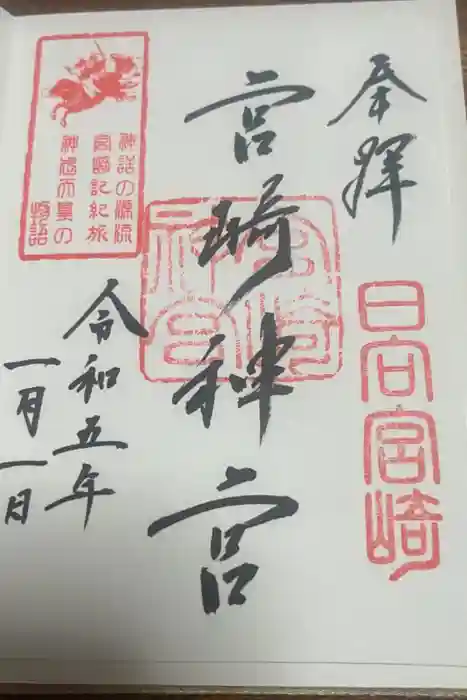 奉拝
日向宮崎
宮崎神宮
宮崎
神宮
神話の源流
宮崎記紀旅
神武天皇の
物語
令和五年
一月一日